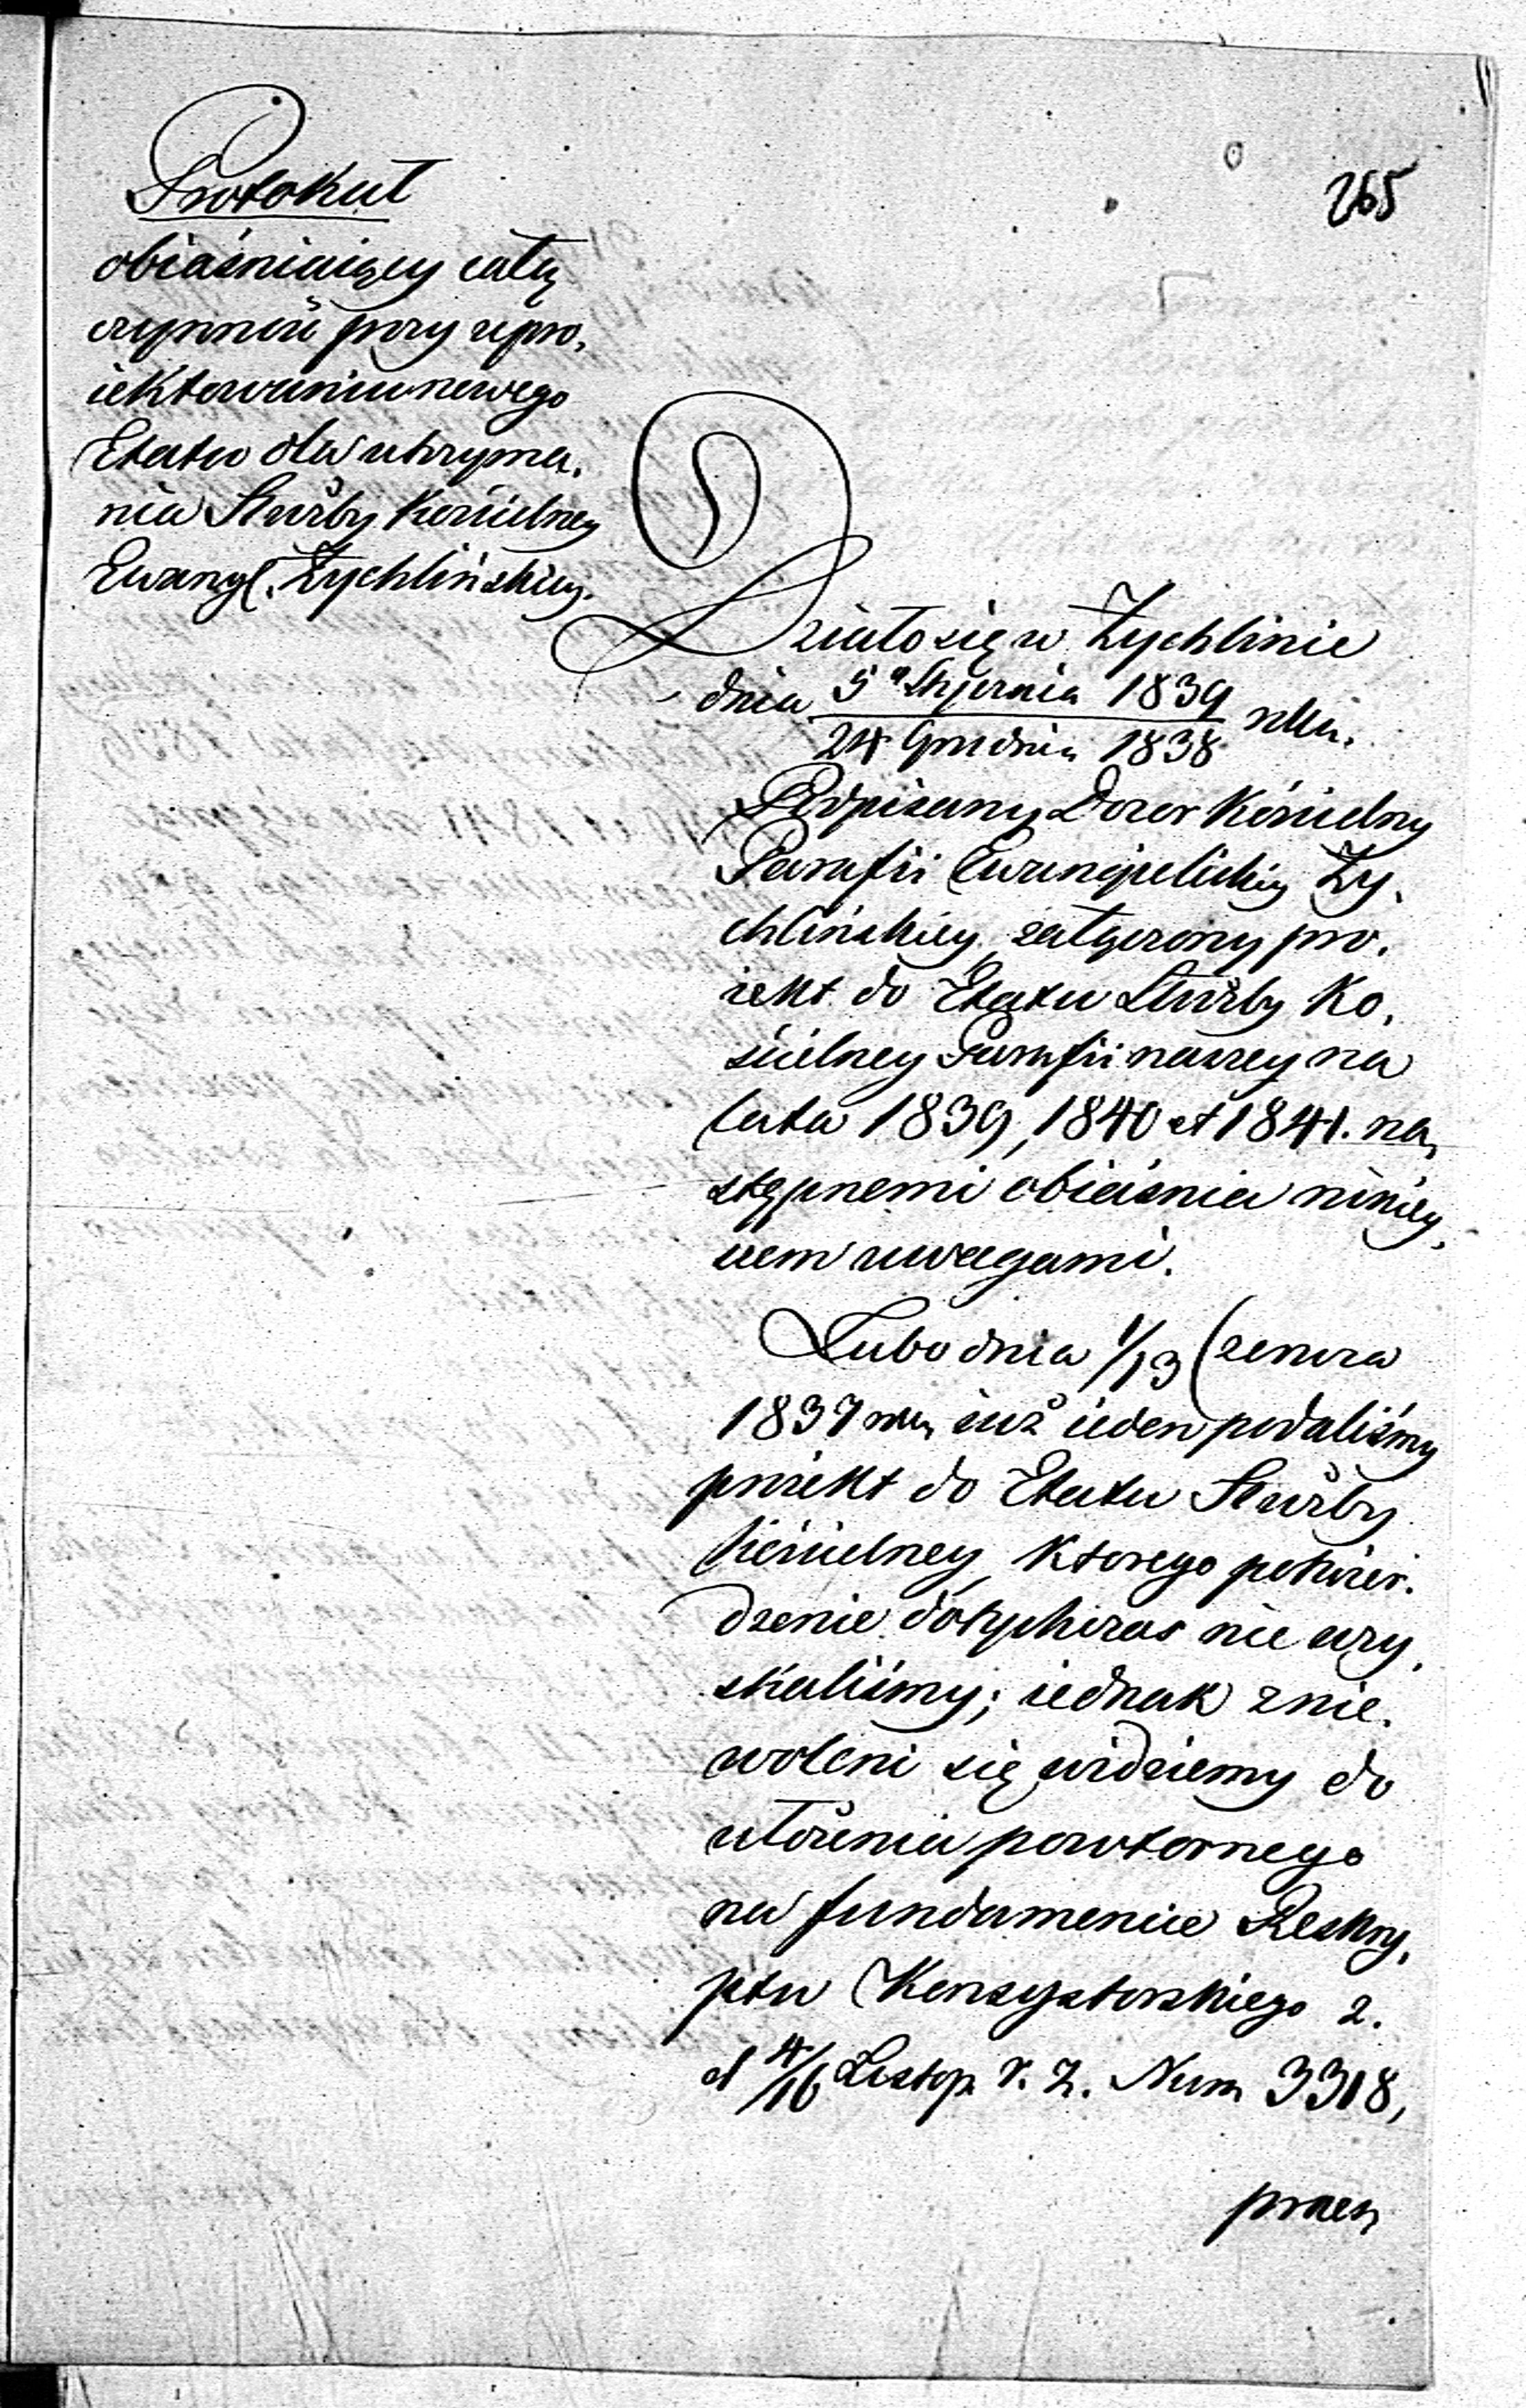 265
Protokuł
obiaśniaiący całą
czynność przy zpro,
iektowaniu nowego
Etatu dla utrzyma,
nia Służby Kościelney
Ewangl. Żychlińskiey.
Działo się w Żychlinie
dnia 5º Stycznia 1839 roku.
24 Grudnia 1838
Podpisany Dozor Kościelny
Parafii Ewangielickiey Ży,
chlińskiey, załączony pro,
iekt do Etatu Służby Ko,
ścielney Parafii naszey na
lata 1839, 1840 et 1841. na,
stępnemi obiaśnia niniey,
szem uwagami.
Lubo dnia 1/13 Czerwca
1837 roku iuż ieden podaliśmy
proiekt do Etatu Służby
kościelney, ktorego potwier,
dzenie dotychczas nie uzy,
skaliśmy; iednak znie,
woleni się widziemy do
ułożenia powtornego
na fundamencie Reskry,
ptu Konsystorskiego z.
d 4/16 Listop. r. z. Num 3318,
przez